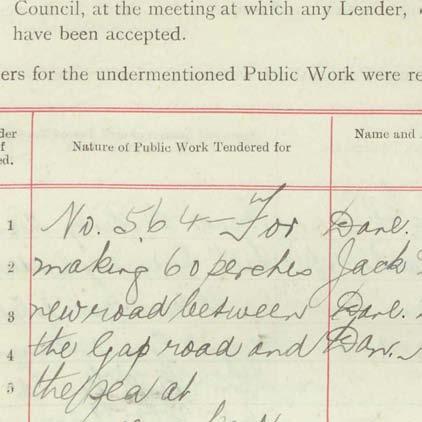 Council, at the meeting at which any Lender,
have been accepted.
ers for the undermentioned Public Work were re
der
f
ed.
Nature of Public Work Tendered for
Name and
1 No. 564 - For Danl.
2 making 60 perches Jack
3 new road between Danl.
4 the Gap road and Dan.
5 the sea at